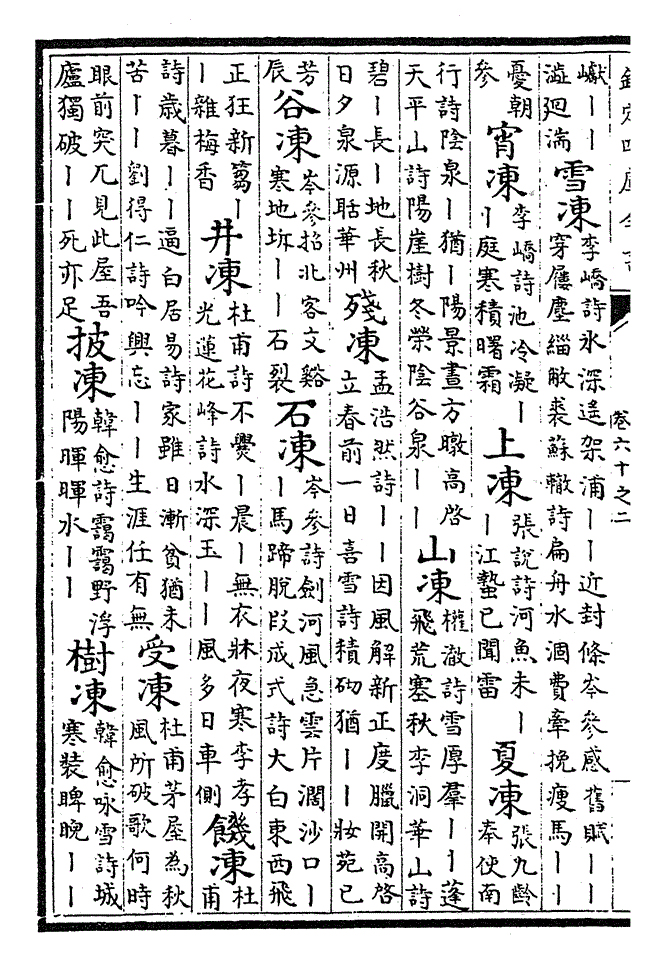 卷六十之二
巘丨丨
澁廻湍
雪凍
李嶠詩氷深遙架浦丨丨近封條岑參感舊賦丨丨
穿屨塵緇敝裘蘇轍詩扁舟水涸費牽挽瘦馬丨丨
憂朝
參
宵凍
李嶠詩池冷凝丨
丨庭寒積曙霜
上凍
張說詩河魚未丨
丨江蟄已聞雷
夏凍
張九齡
奉使南
行詩陰泉丨猶丨陽景晝方暾高啓
天平山詩陽崖樹冬榮陰谷泉丨丨
山凍
權澈詩雪厚羣丨丨蓬
飛荒塞秋李洞華山詩
碧丨長丨地長秋
日夕泉源聒華州
殘凍
孟浩然詩丨丨因風解新正度臘開高啓
立春前一日喜雪詩積砌猶丨丨妝苑已
芳
辰
谷凍
岑參招北客文谿
寒地坼丨丨石裂
石凍
岑參詩劍河風急雲片濶沙口丨
丨馬蹄脫段成式詩大白東西飛
正狂新蒭丨
丨雜梅香
井凍
杜甫詩不爨丨晨丨無衣牀夜寒李孝
光蓮花峰詩水深玉丨丨風多日車側
饑凍
杜
甫
詩歲暮丨丨逼白居易詩家雖日漸貧猶未
苦丨丨劉得仁詩吟興忘丨丨生涯任有無
受凍
杜甫茅屋為秋
風所破歌何時
眼前突兀見此屋吾
廬獨破丨丨死亦足
披凍
韓愈詩靄靄野浮
陽暉暉水丨丨
樹凍
韓愈咏雪詩城
寒裝睥睨丨丨